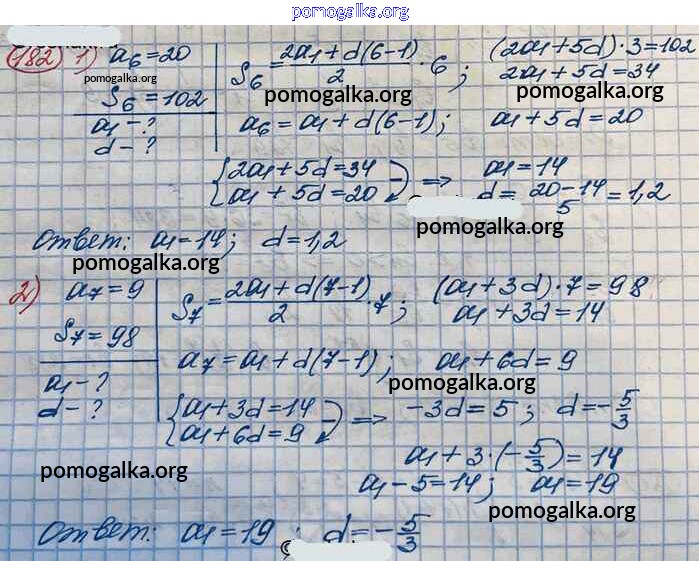 pomogalka.org
182 1) a₆=20
S₆=102
a₁-?
d-?
pomogalka.org
S₆=(2a₁+d(6-1))/2·6; (2a₁+5d)·3=102
2a₁+5d=34
pomogalka.org pomogalka.org
a₆=a₁+d(6-1); a₁+5d=20
{2a₁+5d=34
a₁+5d=20 ⇒ a₁=14
d=(20-14)/5=1,2
pomogalka.org
Ответ: a₁=14; d=1,2
pomogalka.org
2) a₇=9
S₇=98
a₁-?
d-?
S₇=(2a₁+d(7-1))/2·7; (a₁+3d)·7=98
a₁+3d=14
a₇=a₁+d(7-1); a₁+6d=9
pomogalka.org
{a₁+3d=14
a₁+6d=9 ⇒ -3d=5; d=-5/3
a₁+3·(-5/3)=14
pomogalka.org
a₁-5=14; a₁=19
pomogalka.org
Ответ: a₁=19; d=-5/3